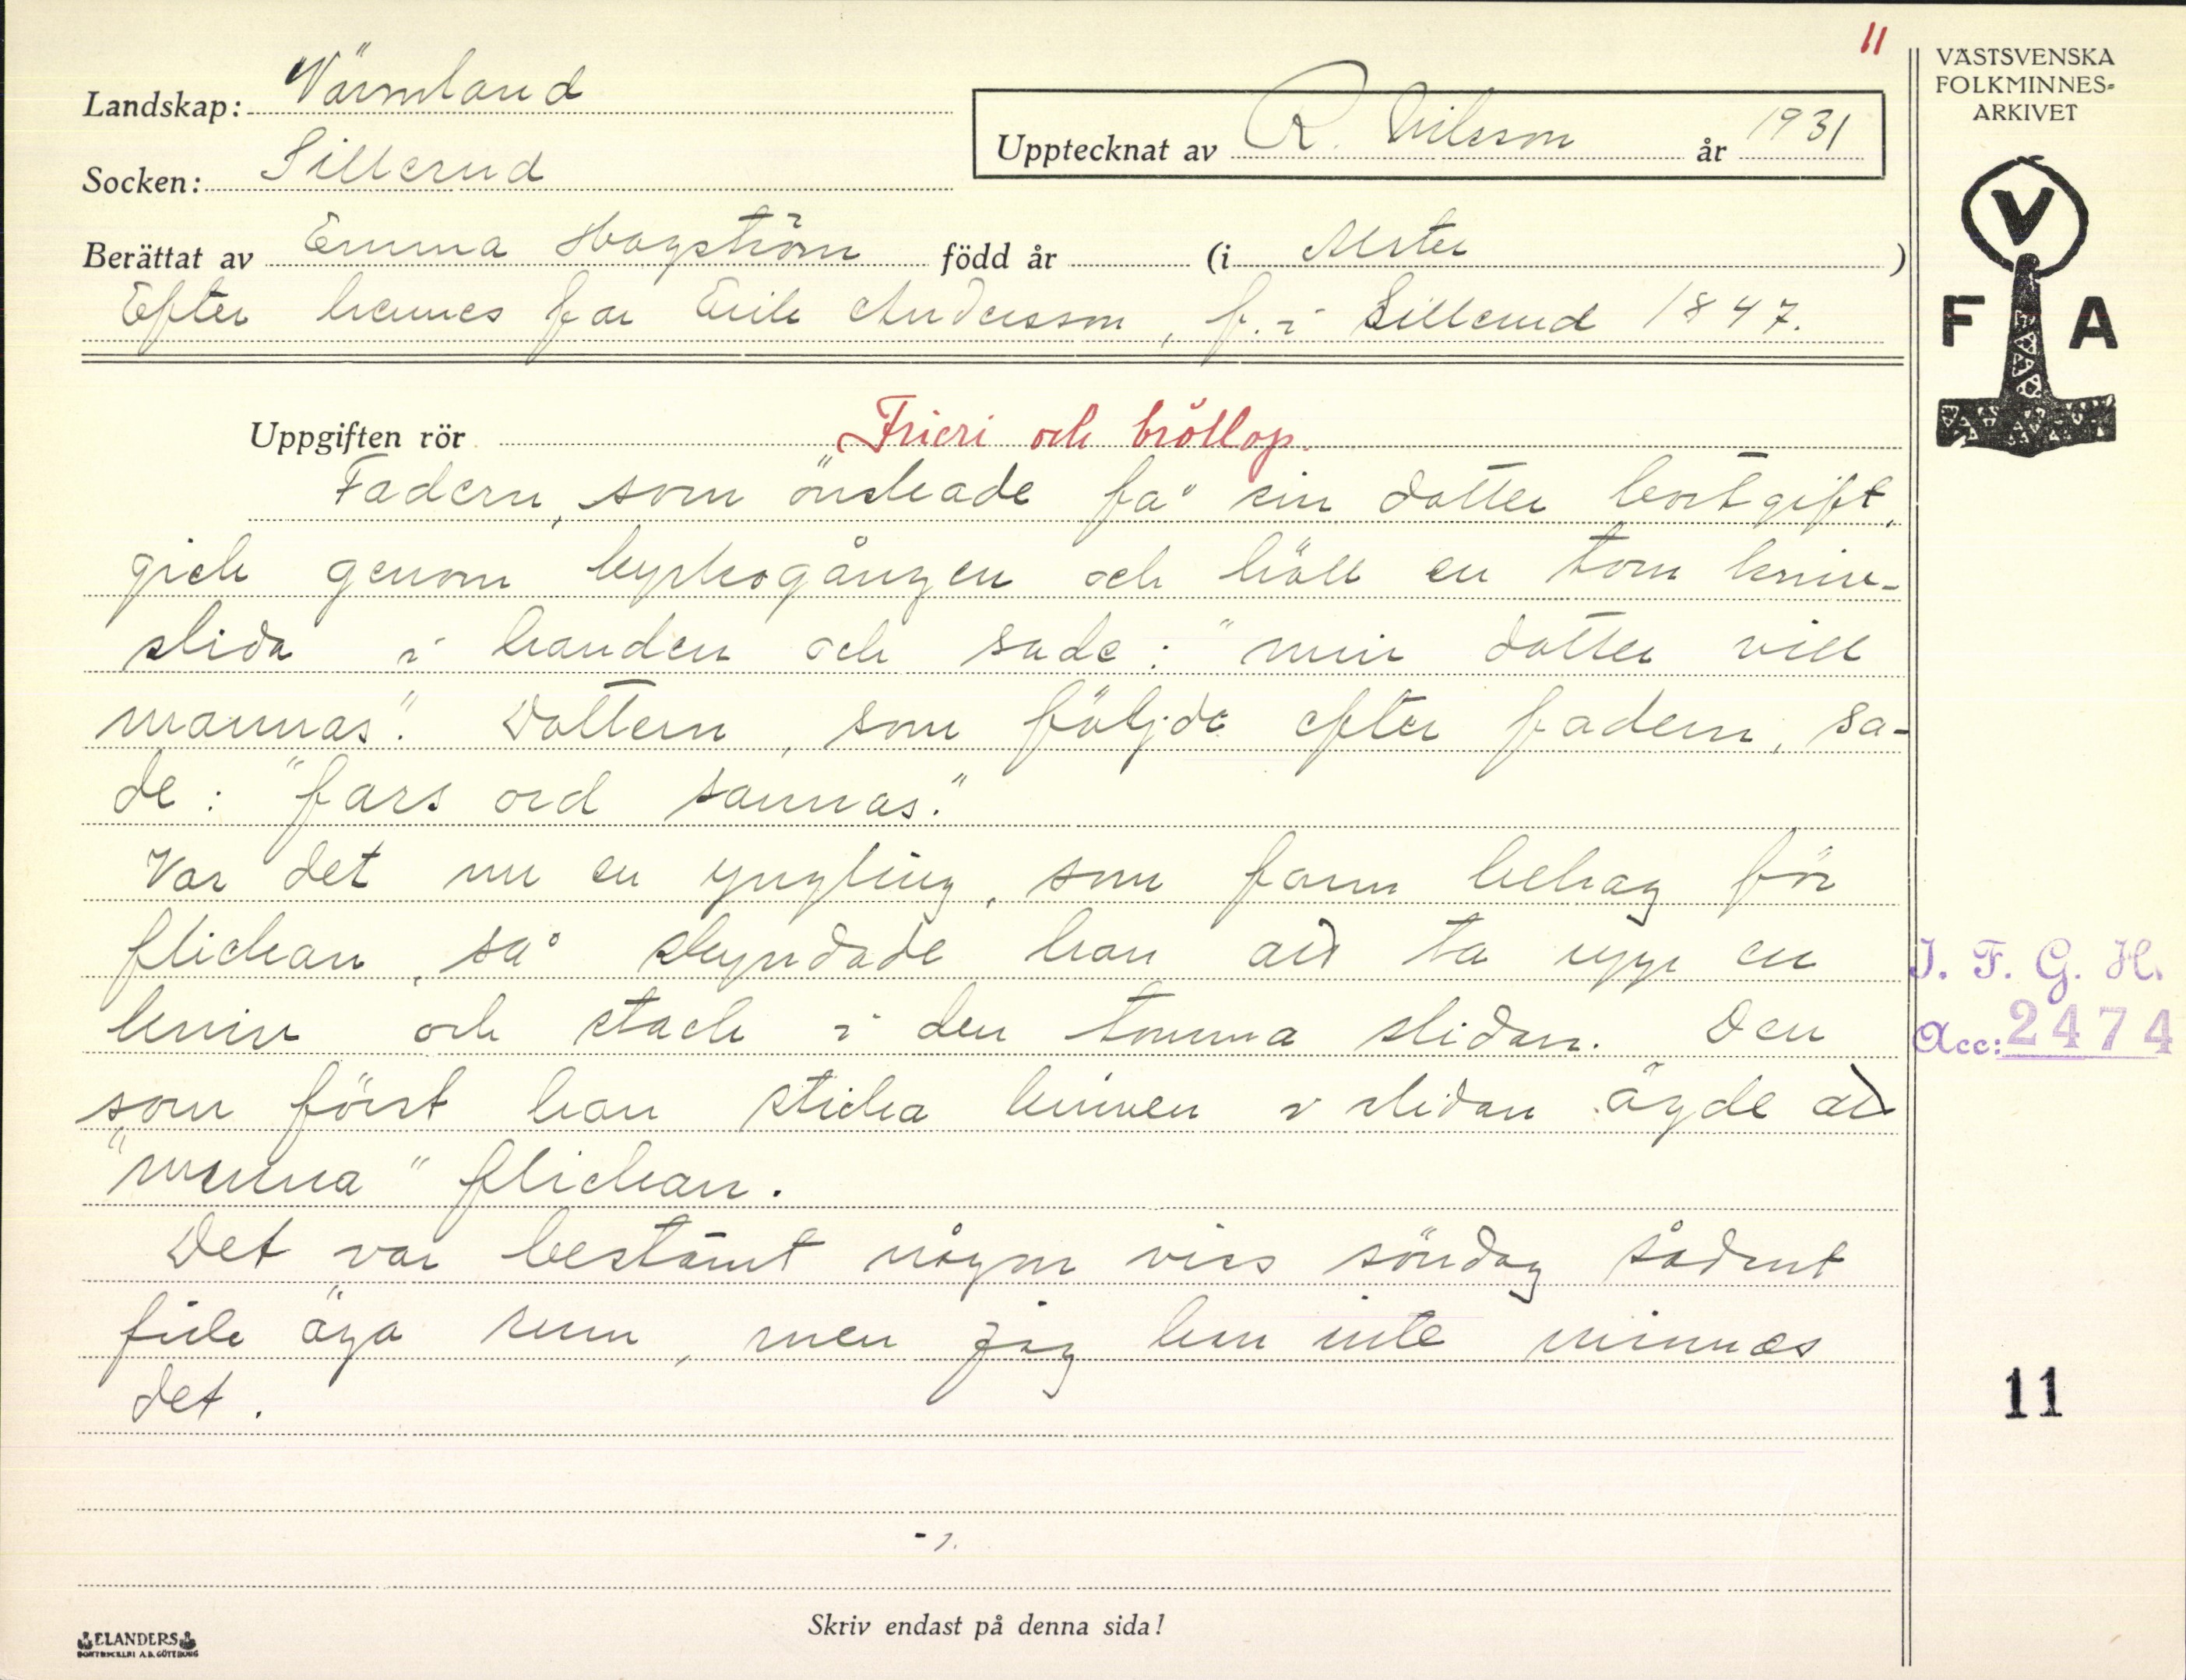 11
VÄSTSVENSKA
FOLKMINNES-
ARKIVET
Landskap: Värmland
Upptecknat av R. Nilsson år 1931
Socken: Sillerud
Berättat av Emma Hagström född år (i Alster )
Efter hennes far Erik Andersson, f. i Sillerud 1847.
V
F A
Uppgiften rör Frieri och bröllop.
Fadern, som önskade få sin dotter bortgift,
gick genom kyrkogången och höll en tom kniv-
slida i handen och sade: "min dotter vill
mannas". Dottern, som följde efter fadern, sa-
de: "fars ord sannas."
Var det nu en yngling, som fann behag för
flickan, så skyndade han att ta upp en
kniv och stack i den tomma slidan. Den
som först han sticka kniven i slidan ägde att
"munna" flickan.
Det var bestämt någon viss söndag sådant
fick äga rum, men jag kan inte minnas
det.
I. F. G. H.
Acc: 2474
11
- 1.
Skriv endast på denna sida!
ELANDERS
BOKTRYCKERI A.B. GÖTEBORG